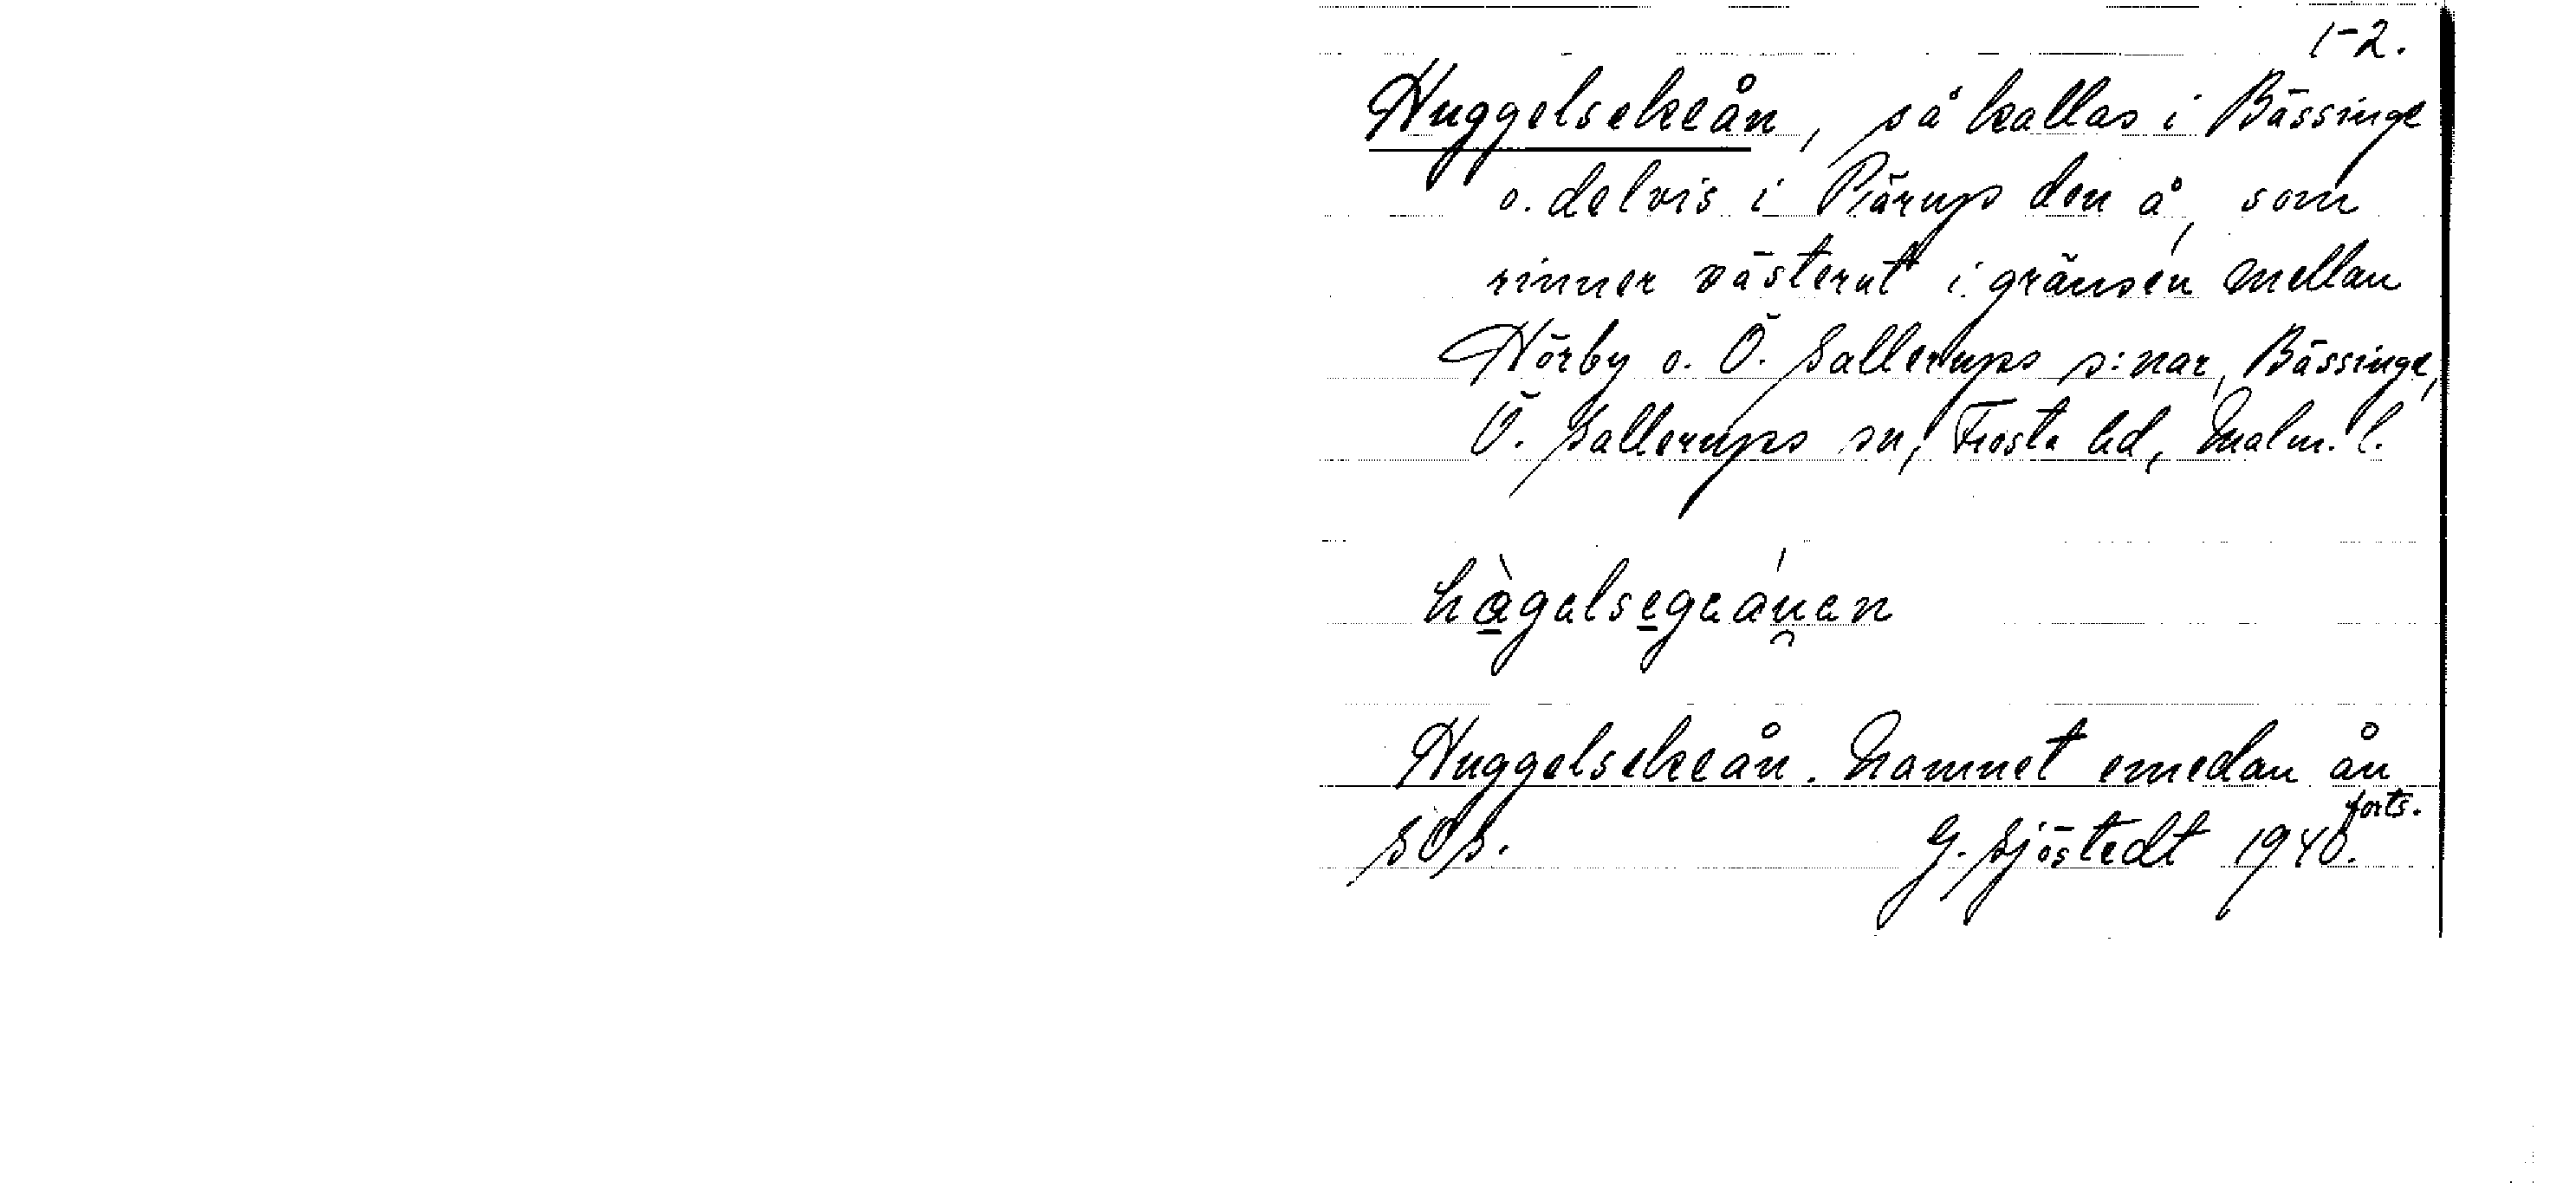 1-2.
Huggelsekeån, så kallas i Bässinge
o. delvis i Pärups den å, som
rinner västerut i gränsen mellan
Hörby o. Ö. Sallerups s:nar, Bässinge,
Ö. Sallerups sn, Frosta hd, Malm. l.
hàgalsegaáu̯en
Huggelsekeån. Namnet emedan ån
forts.
SOS. G. Sjöstedt 1940.